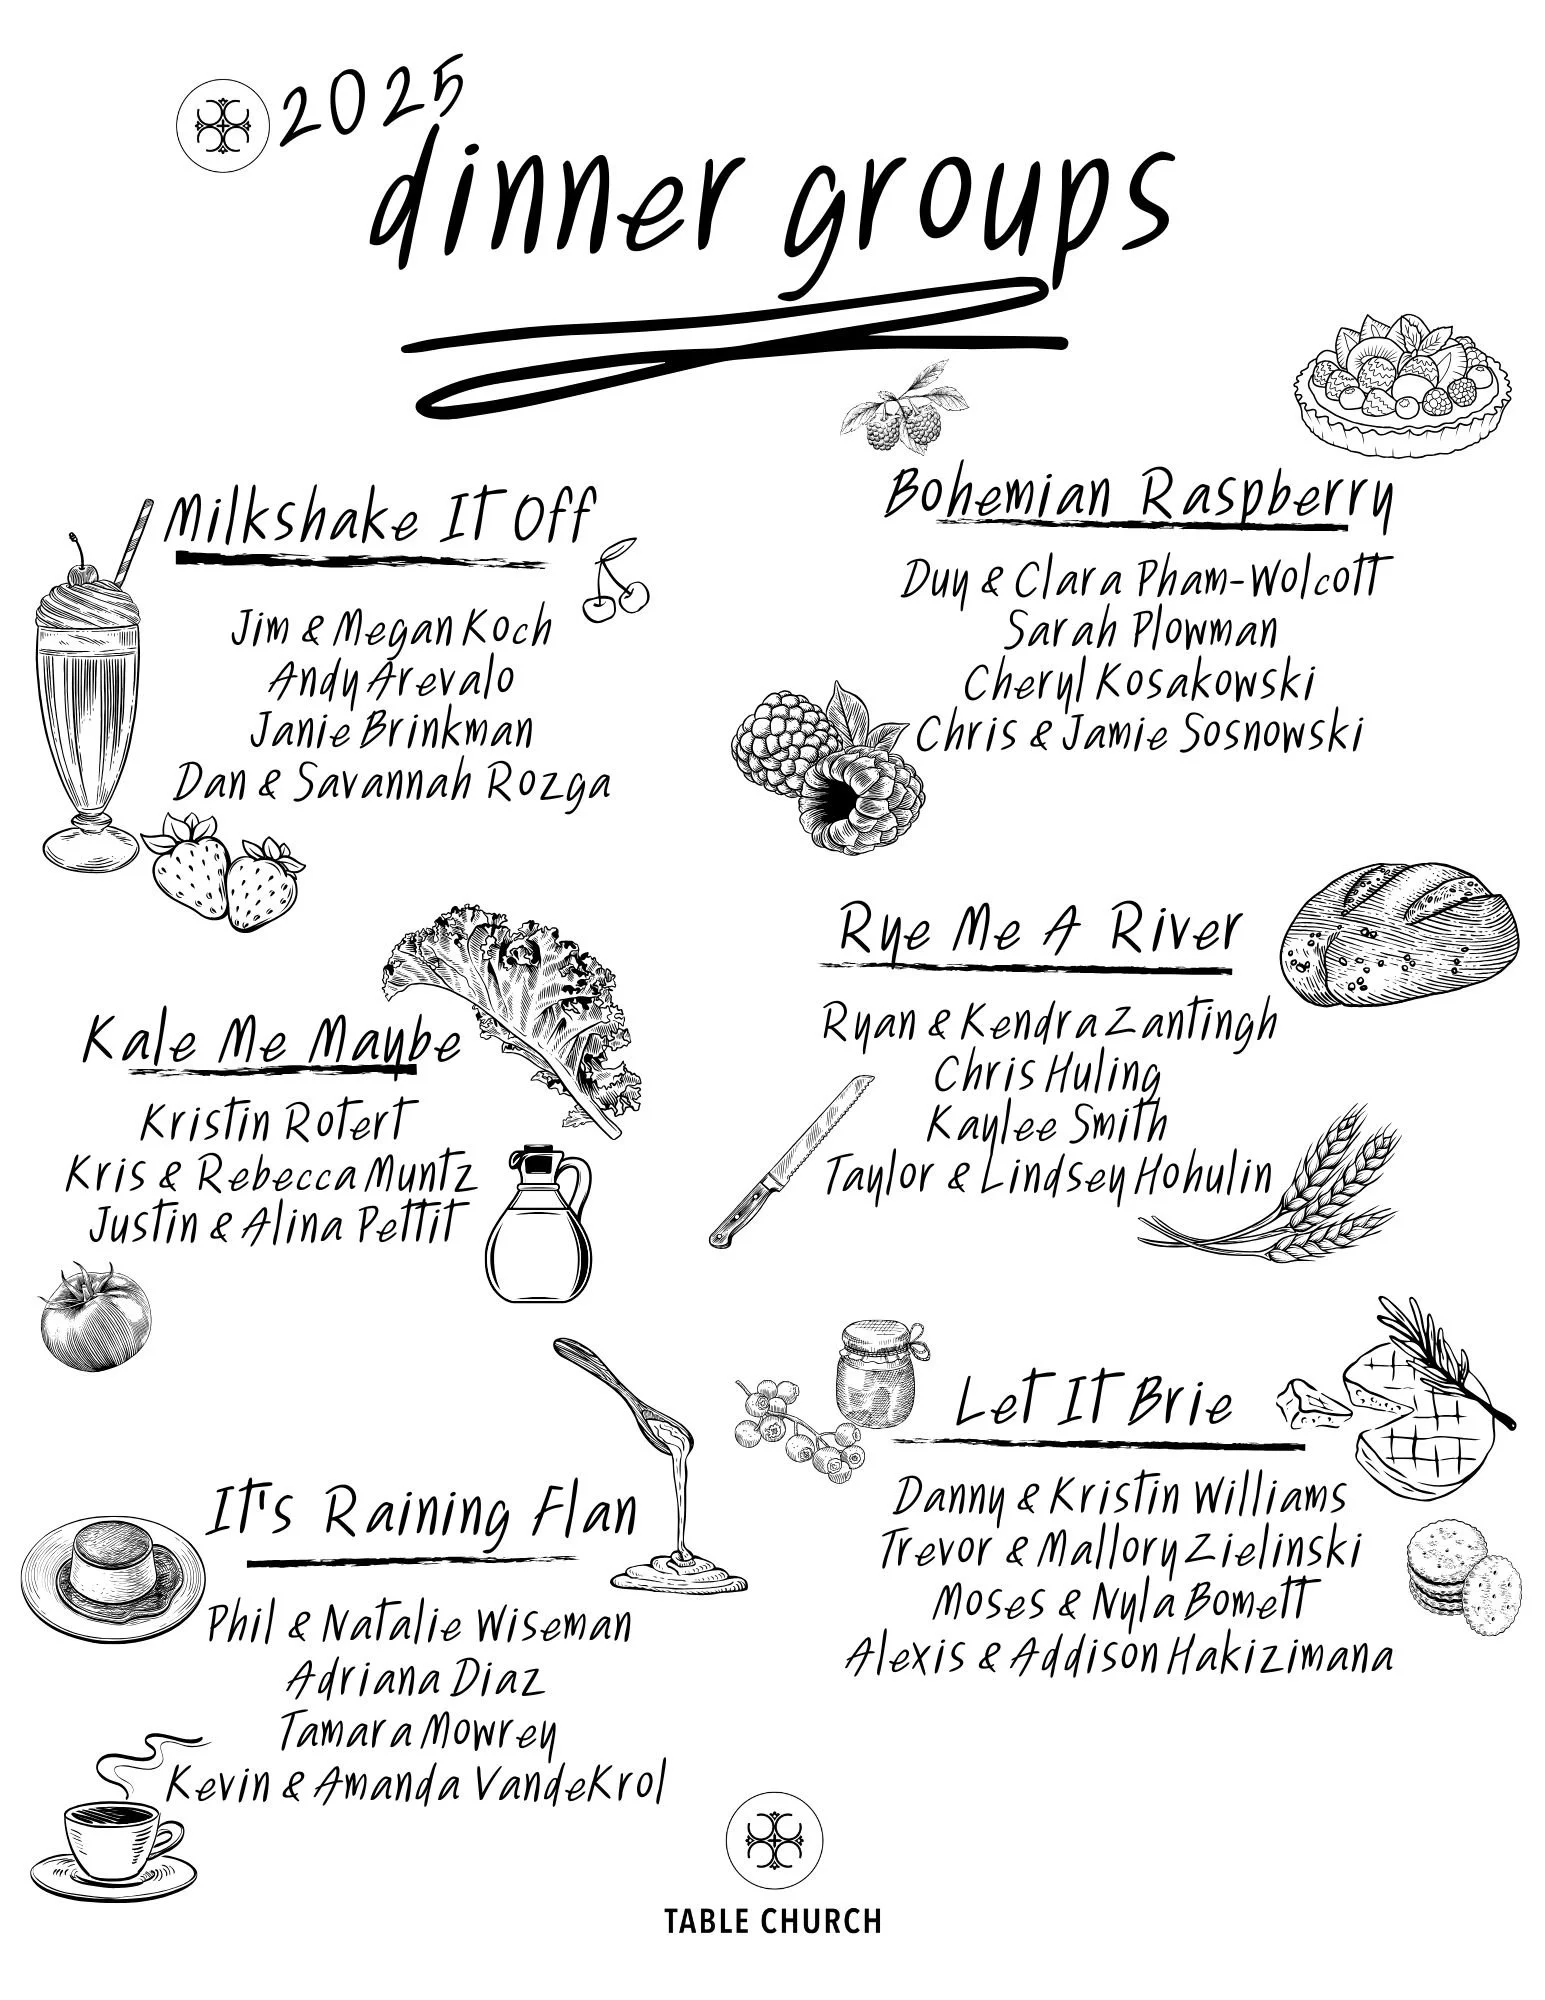 2025
dinner groups
Milkshake It Off
Jim & Megan Koch
Andy Arevalo
Janie Brinkman
Dan & Savannah Rozga
Bohemian Raspberry
Duy & Clara Pham-Wolcott
Sarah Plowman
Cheryl Kosakowski
Chris & Jamie Sosnowski
Kale Me Maybe
Kristin Rotert
Kris & Rebecca Muntz
Justin & Alina Pettit
Rye Me A River
Ryan & Kendra Zantingh
Chris Huling
Kaylee Smith
Taylor & Lindsey Hohulin
It's Raining Flan
Phil & Natalie Wiseman
Adriana Diaz
Tamara Mowrey
Kevin & Amanda VandeKrol
Let It Brie
Danny & Kristin Williams
Trevor & Mallory Zielinski
Moses & Nyla Bomett
Alexis & Addison Hakizimana
TABLE CHURCH